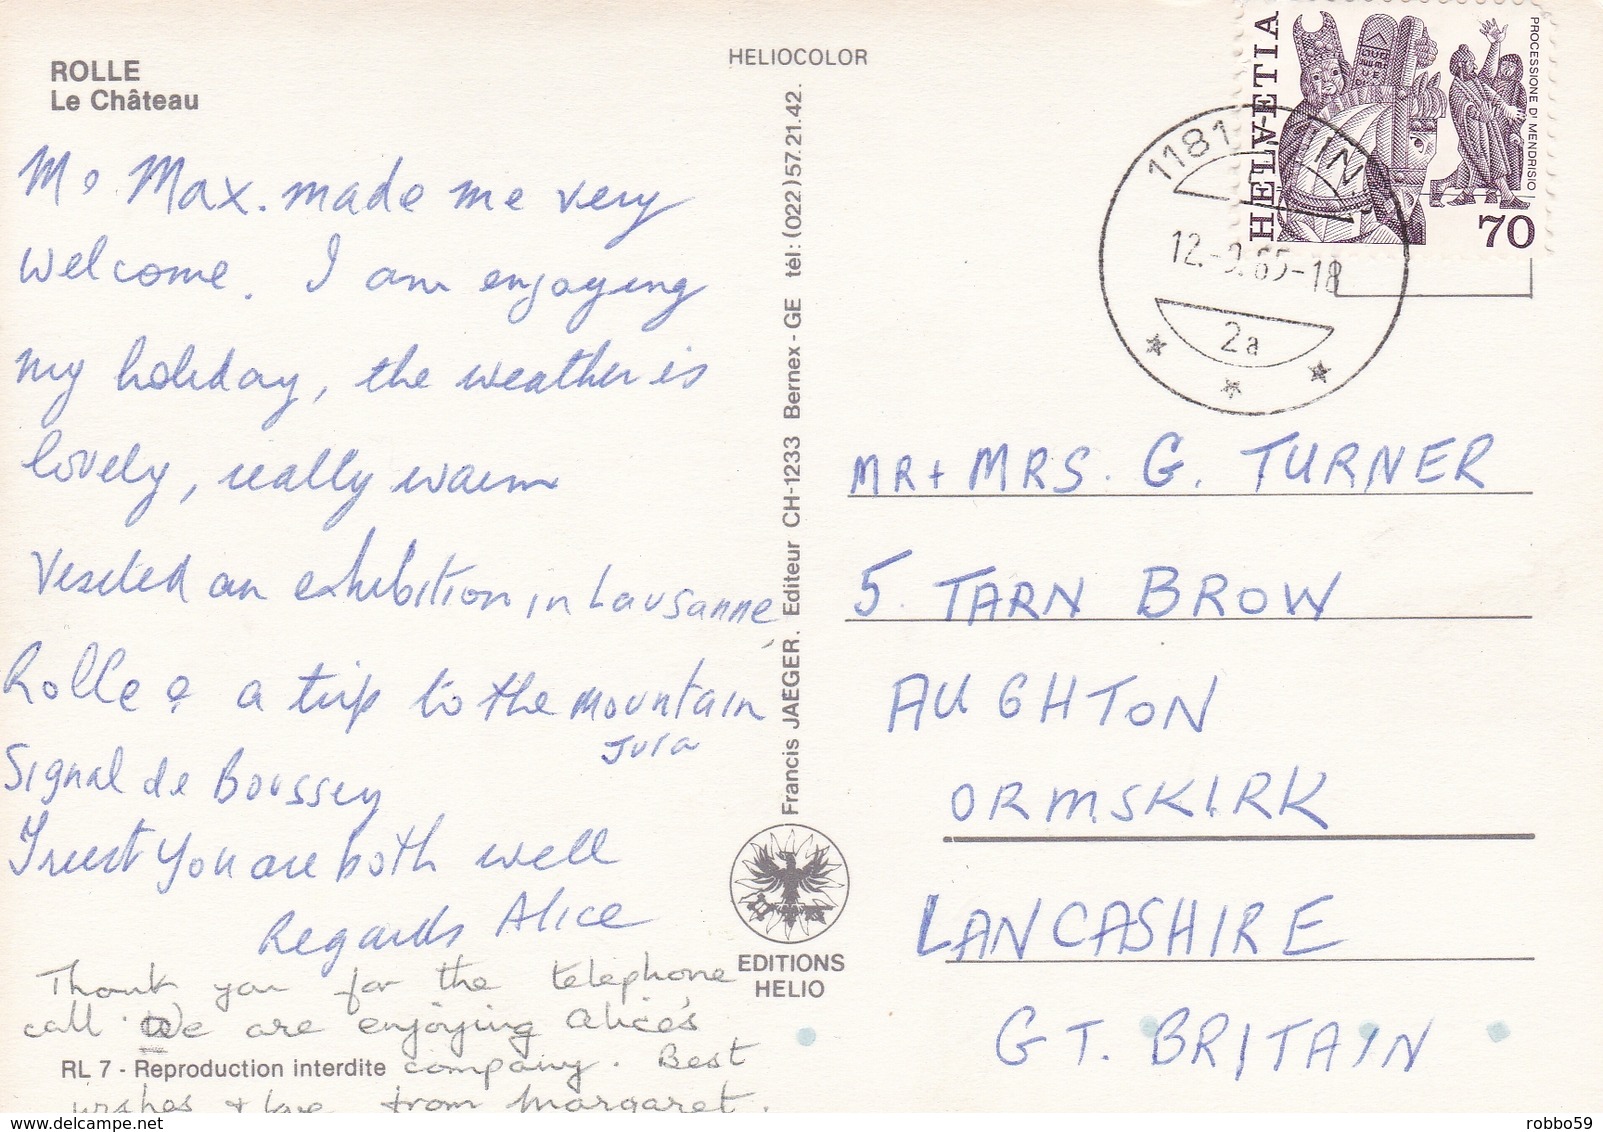 ROLLE
Le Château
HELIOCOLOR
M. Max. made me very
welcome. I am enjoying
my holiday, the weather is
lovely, really warm
Visited an exhibition in Lausanne,
Rolle & a trip to the mountain
Jura
Signal de Boussey
Trust you are both well
Regards Alice
Thank you for the telephone
call. We are enjoying Alice's
company. Best
wishes & love from Margaret.
RL 7 - Reproduction interdite
Francis JAEGER. Editeur CH-1233 Bernex - GE tél: (022) 57.21.42.
EDITIONS
HELIO
HELVETIA
PROCESSIONE DI MENDRISIO
70
1181
-18
2a
MR + MRS. G. TURNER
5. TARN BROW
AUGHTON
ORMSKIRK
LANCASHIRE
GT. BRITAIN
delcampe.net
robbo59